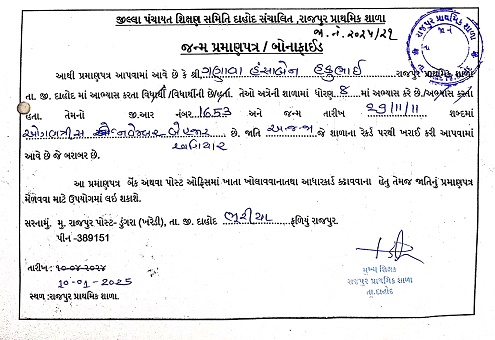 જીલ્લા પંચાયત શિક્ષણ સમિતિ દાહોદ સંચાલિત ,રાજપુર પ્રાથમિક શાળા
જા.નં.૨૦૨૫/૨૧
જન્મ પ્રમાણપત્ર / બોનાફાઈડ
આથી પ્રમાણપત્ર આપવામાં આવે છે કે શ્રી ગણાવા હંસાબેન હઠુભાઈ રાજપુર પ્રાથમિક શાળા
તા. જી. દાહોદ માં અભ્યાસ કરતા વિદ્યાર્થી /વિદ્યાર્થીની છે/હતા. તેઓ અત્રેની શાળામાં ધોરણ 8 માં અભ્યાસ કરે છે/અભ્યાસ કરતા
હતા. તેમનો જી.આર નંબર 1653 અને જન્મ તારીખ 29/11/11 શબ્દમાં
ઓગણત્રીસ નવેમ્બર બેહજાર
અગિયાર
છે. જાતિ અ.જ.જા જે શાળાના રેકર્ડ પરથી ખરાઈ કરી આપવામાં
આવે છે જે બરાબર છે.
આ પ્રમાણપત્ર બેંક અથવા પોસ્ટ ઓફિસમાં ખાતા ખોલાવવાનાતથા આધારકાર્ડ કઢાવવાના હેતુ તેમજ જાતિનું પ્રમાણપત્ર
મેળવવા માટે ઉપયોગમાં લઇ શકાશે.
સરનામું. મુ. રાજપુર પોસ્ટ- ડુંગરા (ખરેડી), તા. જી. દાહોદ ફળિયું રાજપુર.
પીન -389151
તારીખ : ૧૦-૦૪-૨૦૨૪
10-01-2025
સ્થળ :રાજપુર પ્રાથમિક શાળા.
મુખ્ય શિક્ષક
રાજપુર પ્રાથમિક શાળા
તા.દાહોદ